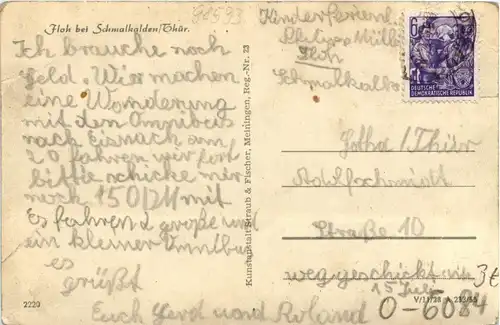 Floh bei Schmalkalden/Thür.
94593
Ich brauche noch
Geld. Wir machen
eine Wanderung
mit den Omnibus
nach Eisnach am
20 fahren wir fort
bitte schicke mir
noch 150 DM mit
Es fahren 2 große und
ein kleiner Omnibus
es
grüßt
Euch Gerd und Roland
2220
Kunstanstalt Straub & Fischer, Meiningen, Reg.-Nr. 23
Kinderferienl.
Müll
Floh
Schmalkalde
DEUTSCHE
DEMOKRATISCHE REPUBLIK
Gotha / Thür
Adolfschmidt
Straße 10
weggeschickt am
15 Juli
3€
V/11/28 A 213/55
0-6084